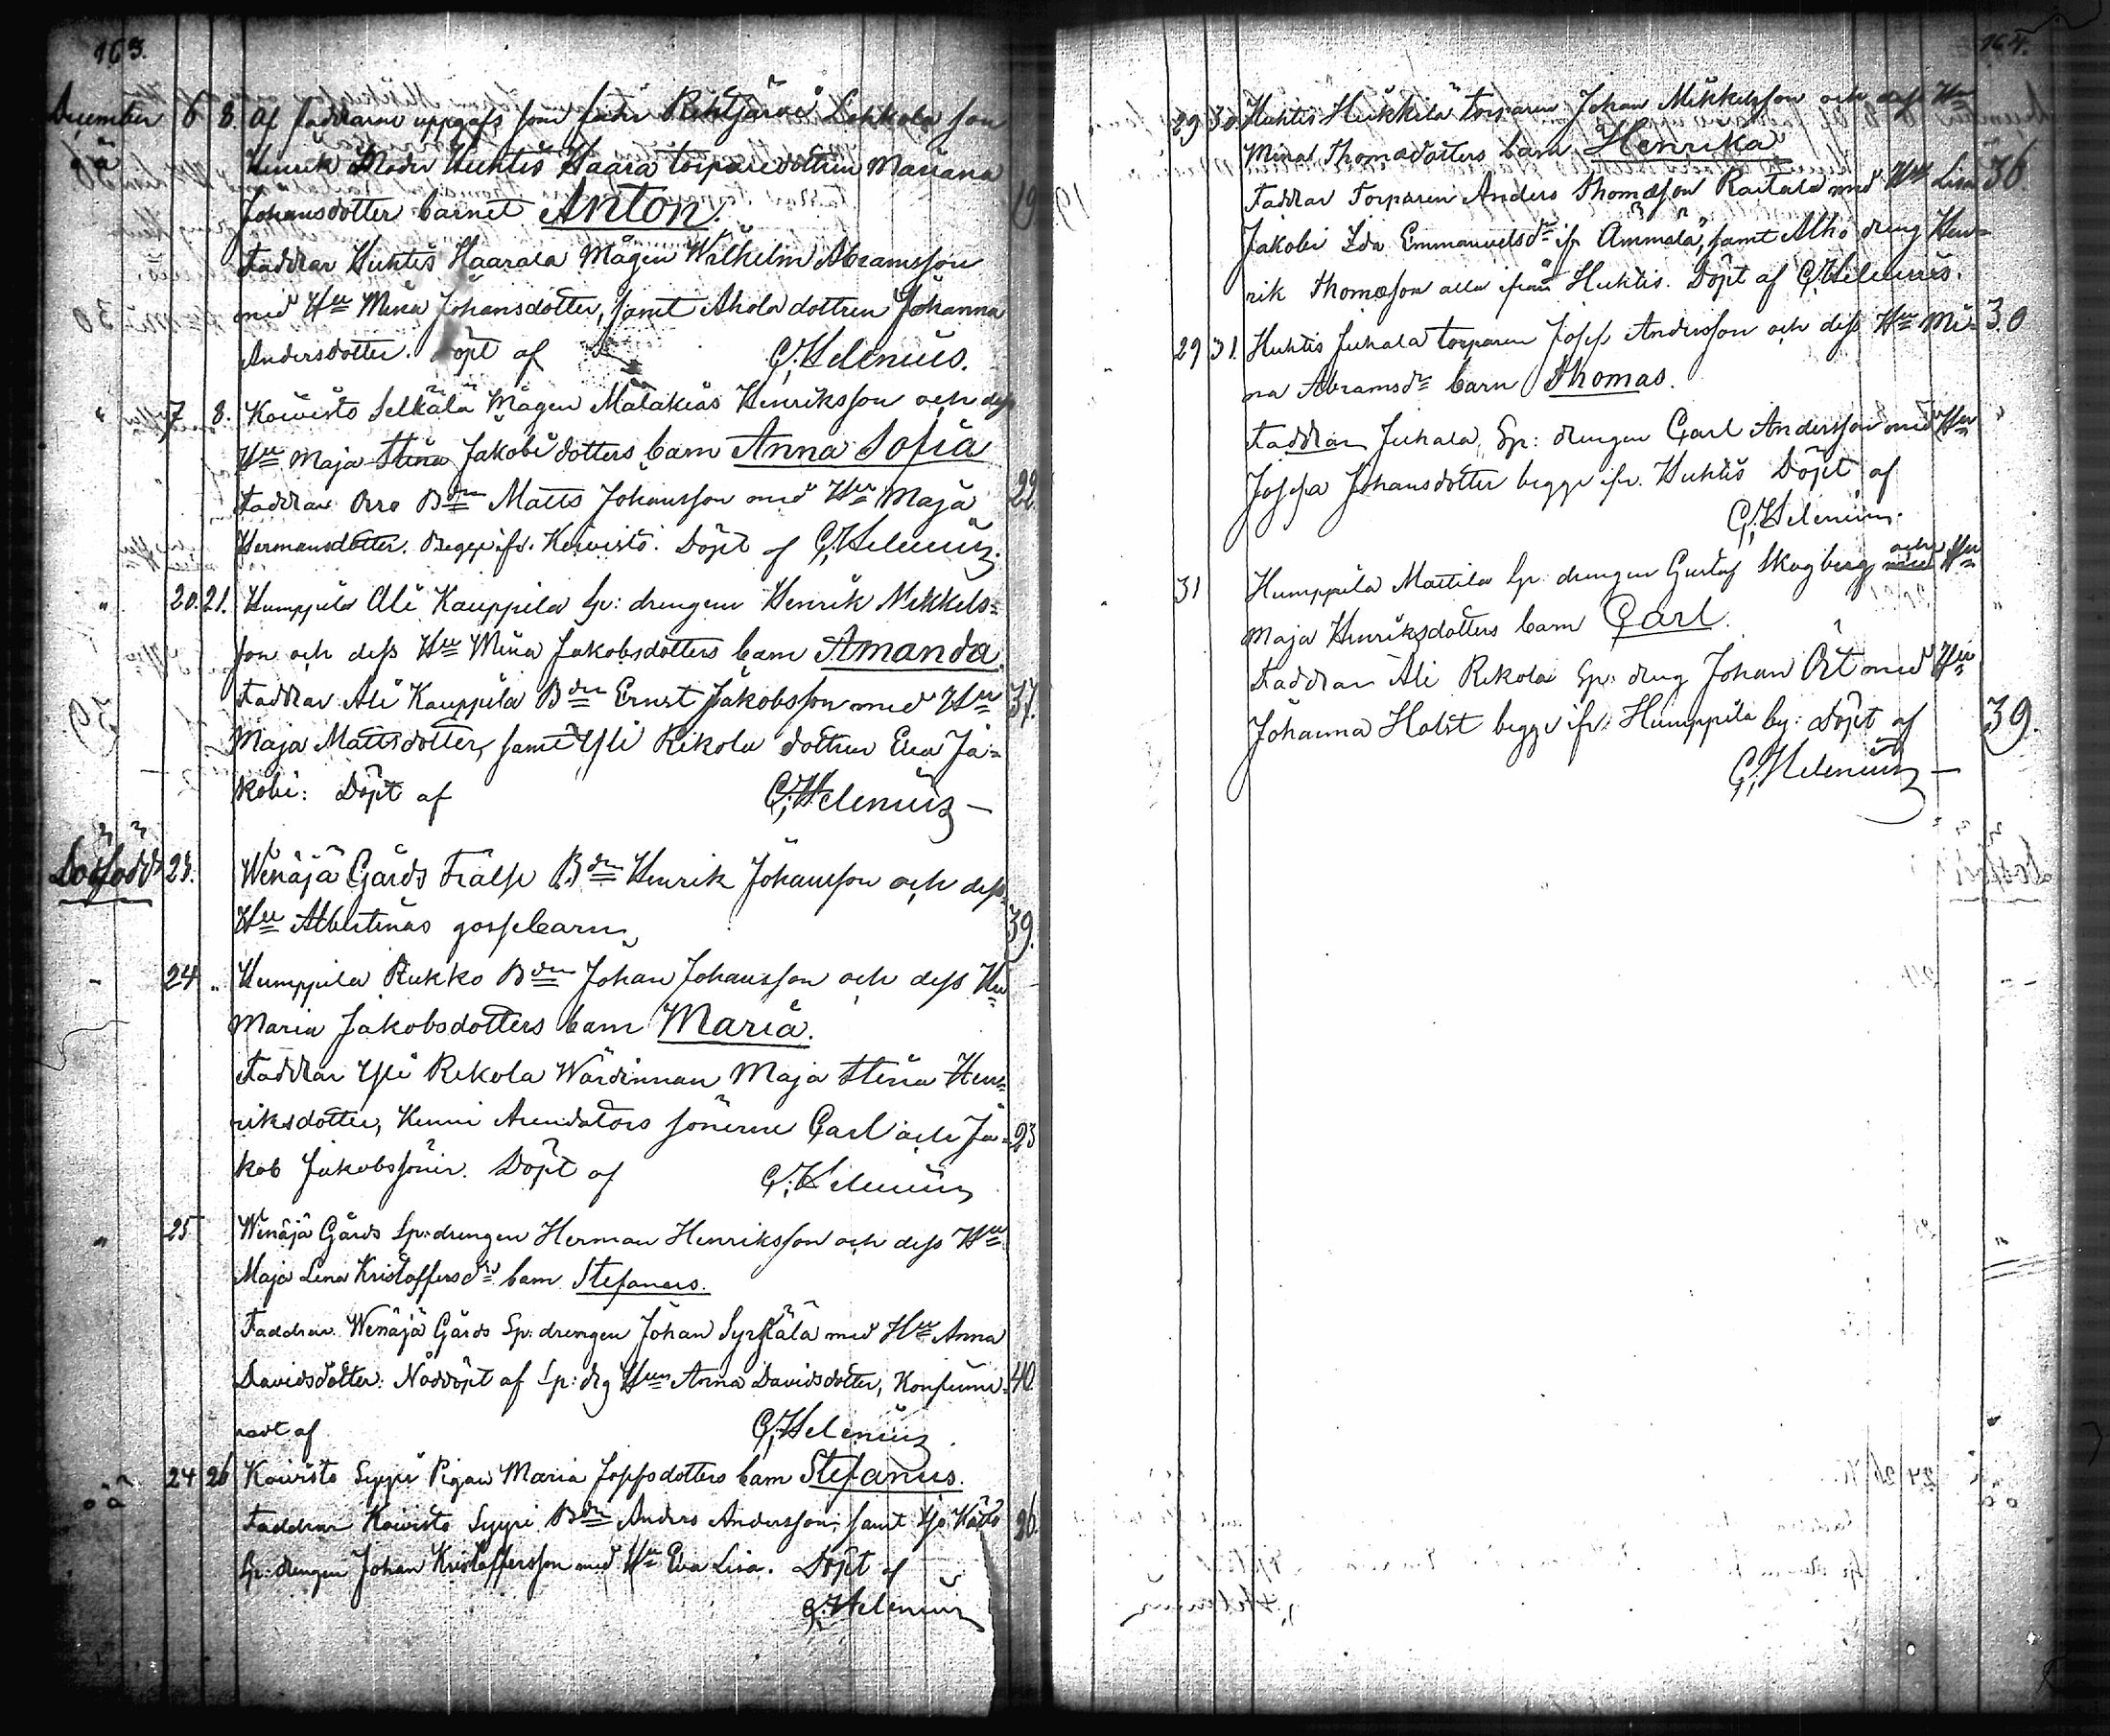 163.
December 6 8. Af faddrarne uppgafs som fader Rehtijärvi Lehkola son
oä Henrik Moder Huhtis Haara torparedottren Mariana
Johansdotter barnet Anton. 19
Faddrar Huhtis Haarala Mågen Wilhelm Abramsson
med Hu Mina Johansdotter, samt Ahola dottren Johanna
Andersdotter. Döpt af G. Helenius.
" 7 8. Koivisto Selkälä Mågen Malakias Henriksson och dess
Hu Maja Stina Jakobi dotters barn Anna Sofia
Faddrar Orro Bdn Matts Johansson med Hu Maja 22
Hermansdotter. Begge ifr. Koivisto. Döpt af G. Helenius.
" 20. 21. Humppila Ali Kauppila Sp: drengen Henrik Mikkels=
son och dess Hu Mina Jakobsdotters barn Amanda.
Faddrar Ali Kauppila Bdn Ernst Jakobsson med Hu 37.
Maja Mattsdotter, samt Yli Rekola dottren Eva Ja=
kobi: Döpt af G. Helenius
Dödfödd 23. Wenäjä Gårds Frälse Bdn Henrik Johansson och dess
Hu Albertinas gossebarn 39.
" 24 " Humppila Rukko Bdn Johan Johansson och dess Hu
Maria Jakobsdotters barn Maria.
Faddrar Yli Rekola Wärdinnan Maja Stina Hen=
riksdotter, Arendators sönerne Carl och Ja= 23
kob Jakobssöner. Döpt af G. Helenius
" 25 Wenäjä Gårds Sp: drengen Herman Henriksson och dess Hu
Maja Lena Kristoffersdr barn Stefanus.
Faddrar Wenäjä Gårds Sp: drengen Johan Syrjälä med Hu Anna
Davidsdotter: Nöddöpt af Sp: drg Hun Anna Davidsdotter, Konfirme= 40
radt af G. Helenius
oä 24 26 Koivisto Seppi Pigan Maria Josefsdotters barn Stefanus.
Faddrar Koivisto Bdn Anders Andersson, samt
Sp: drengen Johan Kristoffersson med Hu Eva Lisa. Döpt af
G. Helenius
164.
29 30. Huhtis Heikkilä torparen Johan Mikkelsson och dess Hu
Mina Thomasdotters barn Henrika
Faddrar Torparen Anders Thomasson Raitala med Hu Lisa 36
Jakobi Ida Emmanuelsdr ifr Ämmälä, samt Alho dreng Hen=
rik Thomasson alla ifrån Huhtis. Döpt af G. Helenius.
29 31. Huhtis Juhala torparen Josef Andersson och dess Hu Mi= 30
na Abramsdr barn Thomas.
Faddrar Juhala Sp: drengen Carl Andersson med Hu
Josefa Johansdotter begge ifr. Huhtis Döpt af
G. Helenius.
" 31 Humppila Mattila Sp: drengen Gustaf Skogberg och Hu
Maja Henriksdotters barn Carl.
Faddrar Ali Rekola Sp: dreng Johan Öst med Hu
Johanna Holst begge ifr. Humppila by: Döpt af 39.
G. Helenius